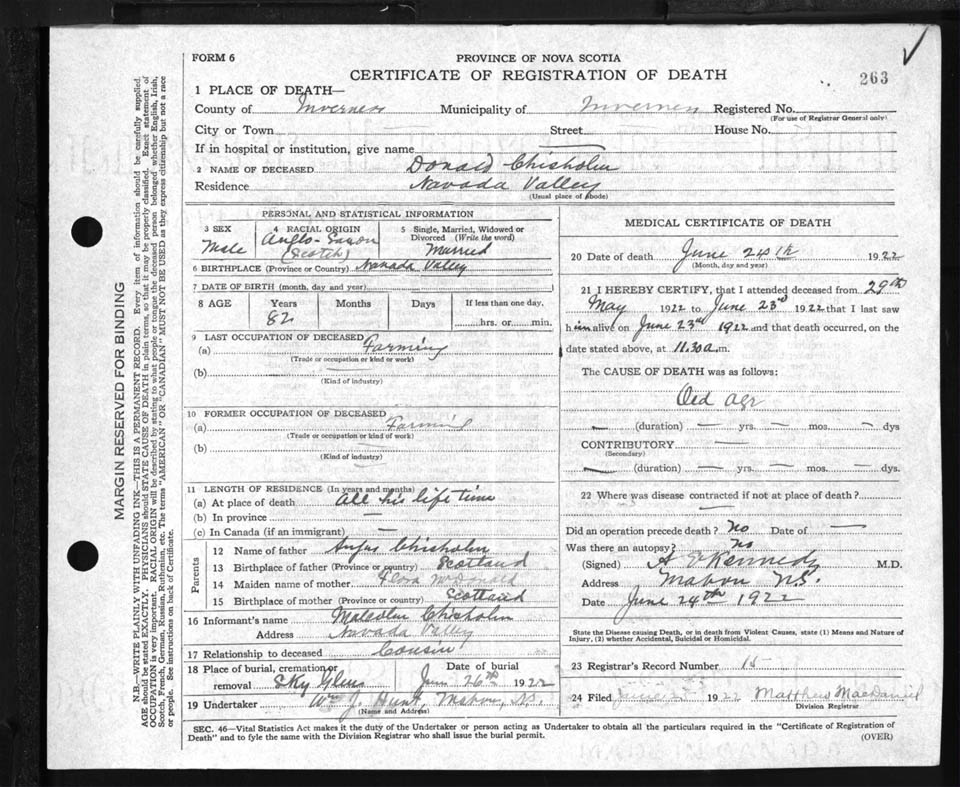 FORM 6
PROVINCE OF NOVA SCOTIA
CERTIFICATE OF REGISTRATION OF DEATH
263
1 PLACE OF DEATH—
County of Inverness Municipality of Inverness Registered No.
(For use of Registrar General only)
City or Town — Street — House No.
If in hospital or institution, give name —
2 NAME OF DECEASED Donald Chisholm
Residence Navada Valley
(Usual place of abode)
PERSONAL AND STATISTICAL INFORMATION
3 SEX
Male
4 RACIAL ORIGIN
Anglo-Saxon
(Scotch)
5 Single, Married, Widowed or
Divorced (Write the word)
Married
6 BIRTHPLACE (Province or Country) Navada Valley
7 DATE OF BIRTH (month, day and year)
8 AGE Years Months Days If less than one day,
82 hrs. or min.
9 LAST OCCUPATION OF DECEASED
(a) Farming
(Trade or occupation or kind or work)
(b)
(Kind of industry)
10 FORMER OCCUPATION OF DECEASED
(a) Farming
(Trade or occupation or kind of work)
(b) —
(Kind of industry)
11 LENGTH OF RESIDENCE (In years and months)
(a) At place of death All his life time
(b) In province —
(c) In Canada (if an immigrant) —
Parents
12 Name of father Angus Chisholm
13 Birthplace of father (Province or country) Scotland
14 Maiden name of mother Flora McDonald
15 Birthplace of mother (Province or country) Scotland
16 Informant's name Malcolm Chisholm
Address Navada Valley
17 Relationship to deceased Cousin
18 Place of burial, cremation or
removal Sky Glens
Date of burial
June 26th 1922
19 Undertaker Wm J. Hunt, Mabou, N.S.
(Name and Address)
MEDICAL CERTIFICATE OF DEATH
20 Date of death June 24th 1922
(Month, day and year)
21 I HEREBY CERTIFY, that I attended deceased from 29th
May 1922 to June 23rd 1922 that I last saw
him alive on June 23rd 1922 and that death occurred, on the
date stated above, at 11.30 a.m.
The CAUSE OF DEATH was as follows:
Old age
— (duration) — yrs. — mos. — dys
CONTRIBUTORY —
(Secondary)
— (duration) — yrs. — mos. — dys.
22 Where was disease contracted if not at place of death?
—
Did an operation precede death? No Date of —
Was there an autopsy? No
(Signed) Kennedy M.D.
Address Mabou N.S.
Date June 24th 1922
State the Disease causing Death, or in death from Violent Causes, state (1) Means and Nature of
Injury, (2) whether Accidental, Suicidal or Homicidal.
23 Registrar's Record Number 15
24 Filed 1922 Matthew MacDaniel
Division Registrar
SEC. 46—Vital Statistics Act makes it the duty of the Undertaker or person acting as Undertaker to obtain all the particulars required in the "Certificate of Registration of
Death" and to fyle the same with the Division Registrar who shall issue the burial permit.
(OVER)
MARGIN RESERVED FOR BINDING
N.B.—WRITE PLAINLY WITH UNFADING INK—THIS IS A PERMANENT RECORD. Every item of information should be carefully supplied.
AGE should be stated EXACTLY. PHYSICIANS should STATE CAUSE OF DEATH in plain terms, so that it may be properly classified. Exact statement of
OCCUPATION is very important. RACIAL ORIGIN will be described by stating to what people or tongue the deceased person belonged whether English, Irish,
Scotch, French, German, Russian, Ruthenian, etc. The terms "AMERICAN" OR "CANADIAN" MUST NOT BE USED as they express citizenship but not a race
or people. See instructions on back of Certificate.